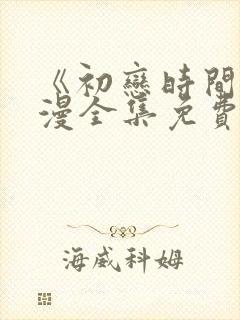 《初戀時間
漫全集免費
海威科姆